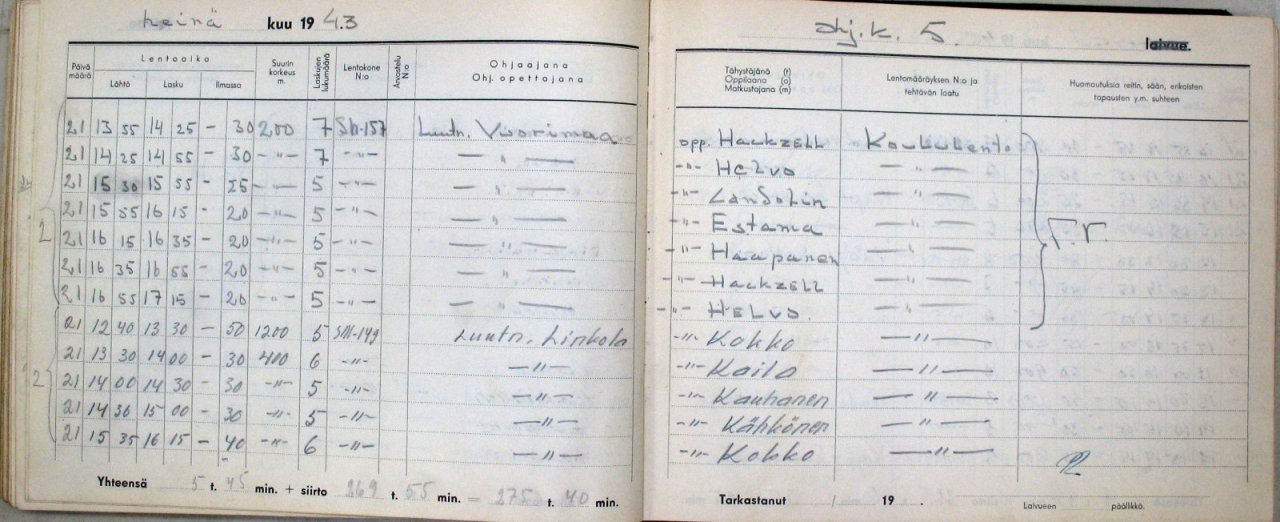 heinä kuu 19 43
Ohj.k. 5. laivue.
Päivä määrä
Lentoaika
Lähtö Lasku Ilmassa
Suurin korkeus m.
Laskujen lukumäärä
Lentokone N:o
Arvostelu N:o
Ohjaajana
Ohj. opettajana
Tähystäjänä (t)
Oppilaana (o)
Matkustajana (m)
Lentomääräyksen N:o ja
tehtävän laatu
Huomautuksia reitin, sään, erikoisten
tapausten y.m. suhteen
21 13 55 14 25 - 30 200 7 SM-157 Luutn. Vuorimaa opp. Hackzell Koululento
21 14 25 14 55 - 30 -"- 7 -"- -"- -"- Helvo -"-
21 15 30 15 55 - 25 -"- 5 -"- -"- -"- Landolin -"-
21 15 55 16 15 - 20 -"- 5 -"- -"- -"- Estama -"-
21 16 15 16 35 - 20 -"- 5 -"- -"- -"- Haapanen -"-
21 16 35 16 55 - 20 -"- 5 -"- -"- -"- Hackzell -"-
21 16 55 17 15 - 20 -"- 5 -"- -"- -"- Helvo. -"-
21 12 40 13 30 - 50 1200 5 SM-149 Luutn. Linkola -"- Kokko -"-
21 13 30 14 00 - 30 400 6 -"- -"- -"- Kaila -"-
21 14 00 14 30 - 30 -"- 5 -"- -"- -"- Kauhanen -"-
21 14 30 15 00 - 30 -"- 5 -"- -"- -"- Kähkönen -"-
21 15 35 16 15 - 40 -"- 6 -"- -"- -"- Kokko -"-
T.r.
2
2
Yhteensä 5 t. 45 min. + siirto 269 t. 55 min. = 275 t. 40 min.
Tarkastanut / 19 .
Laivueen päällikkö.